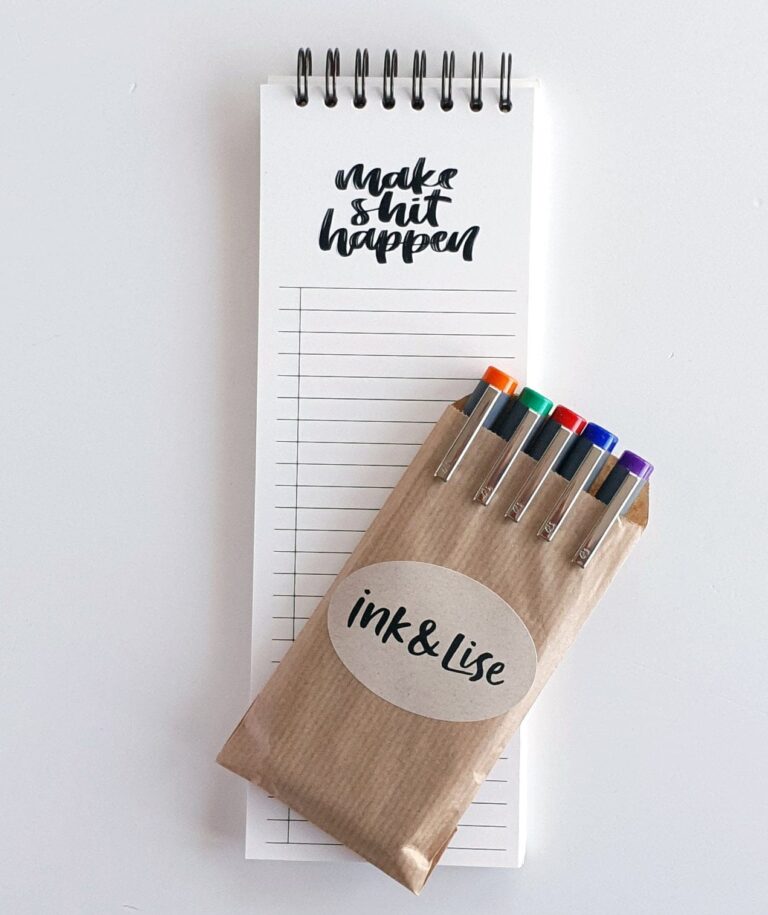 make
shit
happen
ink&Lise